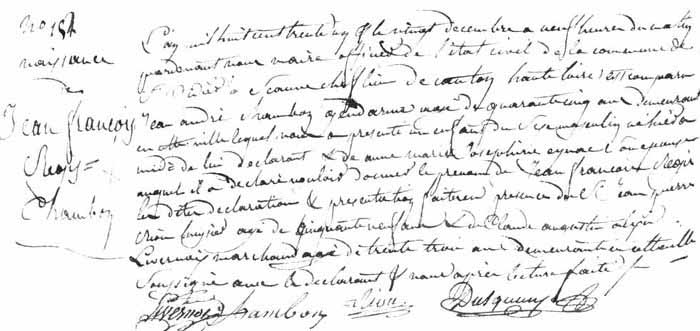 No 154
naissance
de
Jean françois
Regis
Chambon
L'an mil huit cent trente six & le vingt décembre a neuf heures du matin
pardevant nous maire officier de l'état civil de la commune de
chef lieu de canton haute loire est comparu
Jean andré Chambon gendarme agé de quarante cinq ans demeurant
en cette ville lequel nous a presenté un enfant du sexe masculin né hier a
de lui déclarant & de anne marie Josephine eynac son épouse
auquel il a déclaré vouloir donner le prenom de Jean francois Regis
les dites déclaration & presentation faites en presence de Jean pierre
crion huissier agé de cinquante neuf ans & de Claude augustin
Livernois marchand agé de trente trois ans demeurant en cette ville
Soussigné avec le déclarant & nous après lecture faite
Livernois Chambon crion